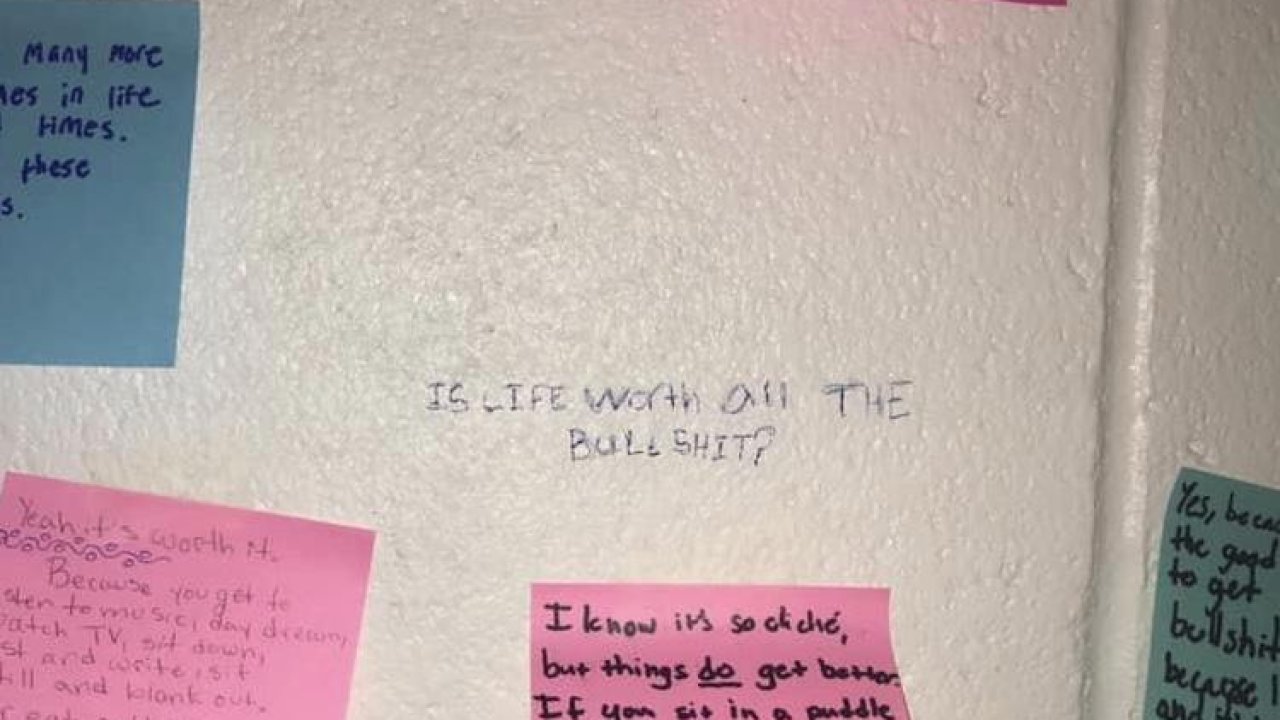 Many more
in life
times.
these
s.
IS LIFE worth all THE
BULLSHIT?
Yeah it's worth it.
Because you get to
to music, day dream,
TV, sit down,
and write, sit
and blank out.
I know it's so cliché,
but things do get better.
If you sit in a puddle
Yes,
the good
to get
bullshit
because I